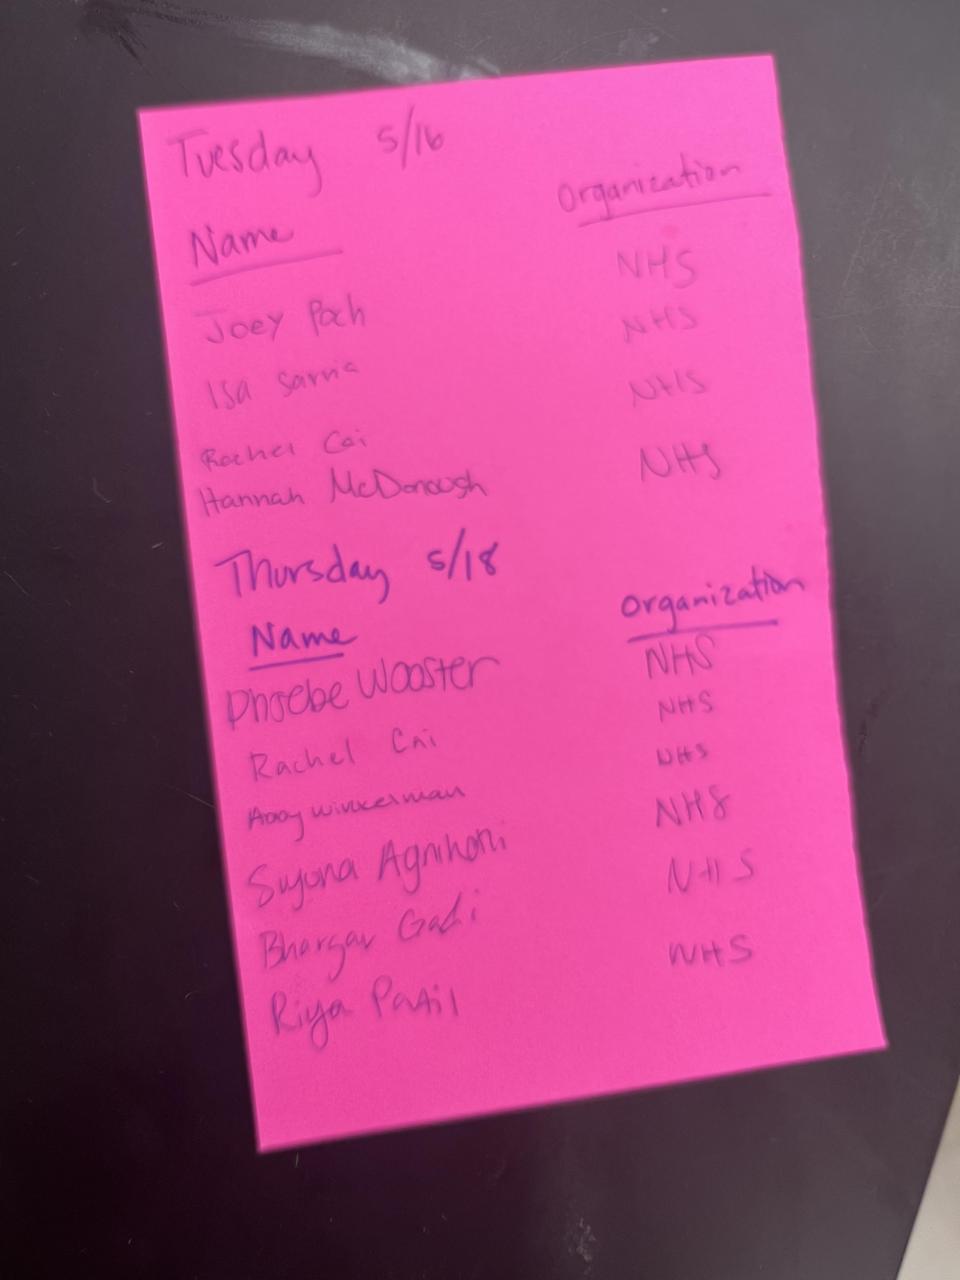 Tuesday 5/16
Name Organization
Joey Poch NHS
Isa Sarria NHS
Rachel Cai NHS
Hannah McDonough NHS
Thursday 5/18
Name Organization
Phoebe Wooster NHS
Rachel Cai NHS
Abby Winkerman NHS
Suyona Agnihotri NHS
Bhargav Gadi NHS
Riya Patil NHS